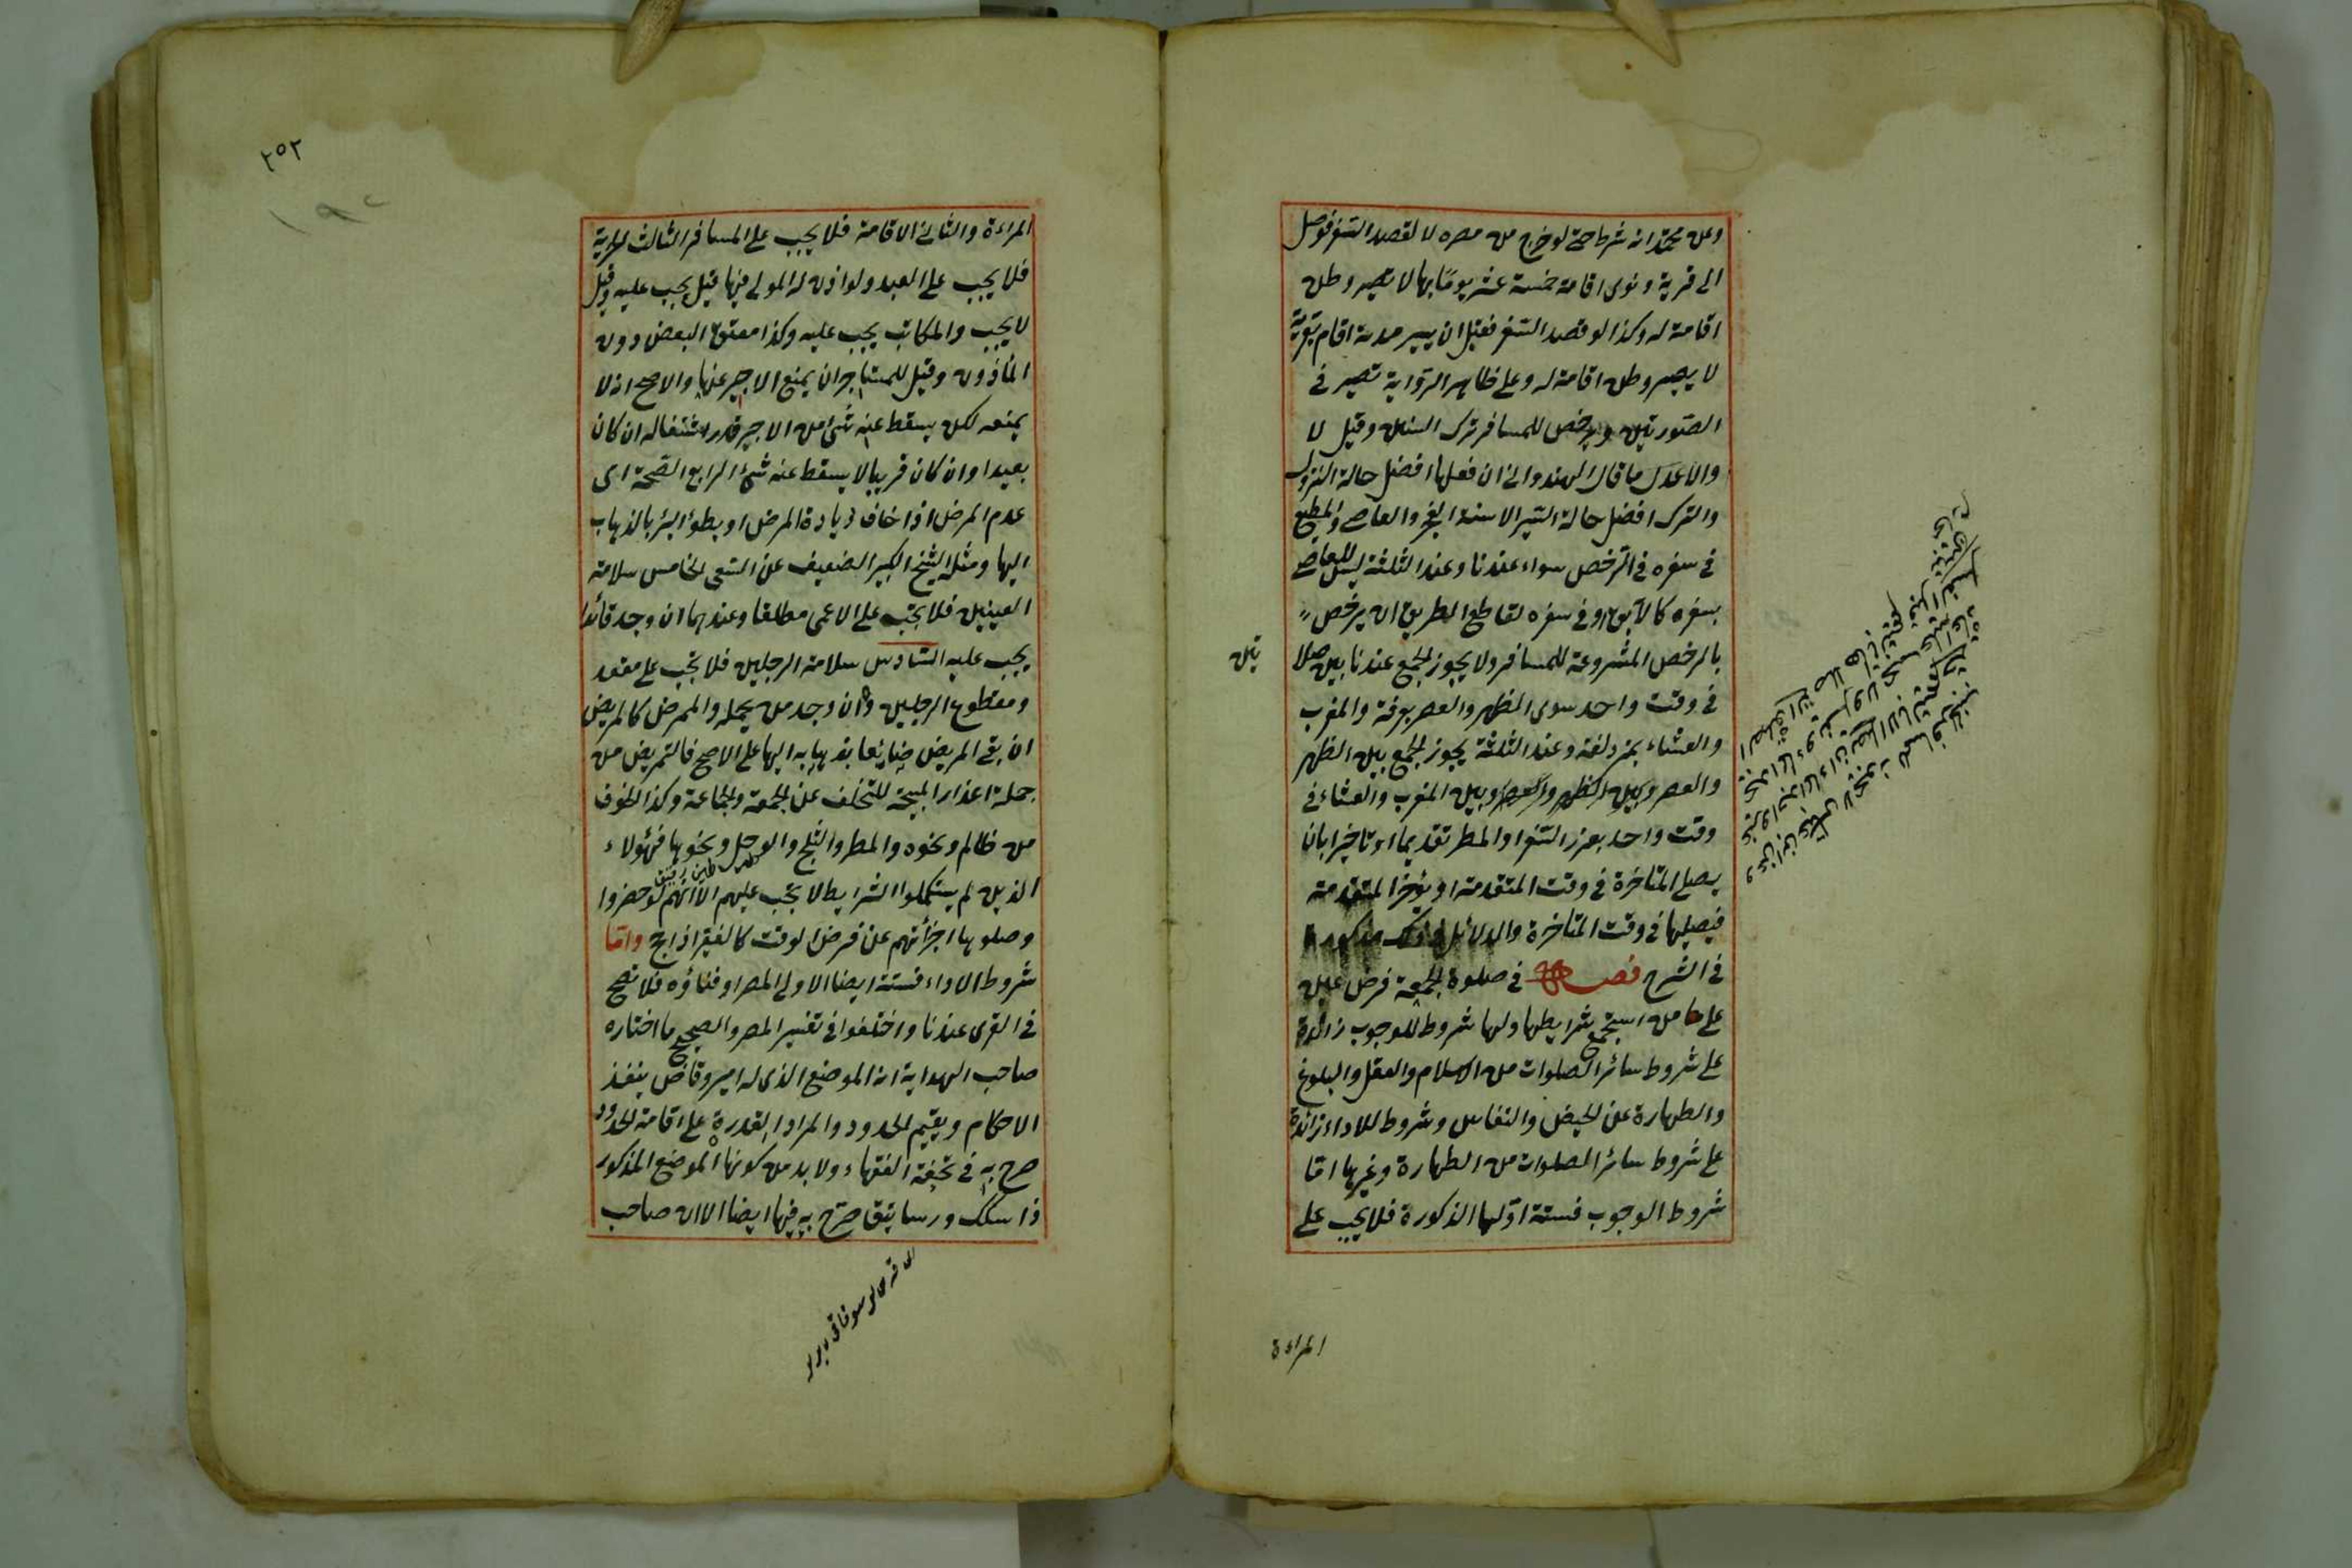 وعن محمد انه شرط حتى لو خرج من مصره لا لقصد السفر فوصل
الى قرية ونوى اقامة خمسة عشر يومًا بها لا تصير وطن
اقامة له وكذا لو قصد السفر فقبل ان يسير مدته اقام بقرية
لا يصير وطن اقامة له وعلى ظاهر الرواية تصير في
الصورتين ويرخص للمسافر ترك السنن وقيل لا
والاعدل ما قال الهندواني ان فعلها افضل حالة النزول
والترك افضل حالة السير الا سنة الفجر والعاصي والمطيع
في سفره في الترخص سواء عندنا وعند الثلثة ليس للعاصي
بسفره كالآبق او في سفره لقاطع الطريق ان يرخص
بالرخص المشروعة للمسافر ولا يجوز الجمع عندنا بين صلا
تين
في وقت واحد سوى الظهر والعصر بعرفة والمغرب
والعشاء بمزدلفة وعند الثلثة يجوز الجمع بين الظهر
والعصر وبين الظهر والعصر وبين المغرب والعشاء في
وقت واحد بعزر السفر او المطر تقديما او تاخيرا بان
يصلي المتاخرة في وقت المتقدمة او يؤخر المتقدمة
فيصليها في وقت المتاخرة والدلائل مذكورة
في الشرح فصل في صلوة الجمعة فرض عين
على من استجمع شرايطها ولها شروط للوجوب زائدة
على شروط سائر الصلوات من الاسلام والعقل والبلوغ
والطهارة عن الحيض والنفاس وشروط للاداء زائدة
على شروط سائر الصلوات من الطهارة وغيرها اما
شروط الوجوب فستة اولها الذكورة فلا يجب على
المراءة
٢٥٢
المراءة والثاني الاقامة فلا يجب على المسافر الثالث الحرية
فلا يجب على العبد ولو اذن له المولى فيها قيل يجب عليه وقيل
لا يجب والمكاتب يجب عليه وكذا معتق البعض دون
المأذون وقيل للمستاجر ان يمنع الاجير عنها والاصح انه لا
يمنعه لكن يسقط عنه شئ من الاجر قدر اشتغاله ان كان
بعيدا وان كان قريبا لا يسقط عنه شئ الرابع الصحة اى
عدم المرض اذا خاف زيادة المرض او بطؤ البرء بالذهاب
اليها ومثله الشيخ الكبير الضعيف عن السعى الخامس سلامة
العينين فلا يجب على الاعمى مطلقا وعندهما ان وجد قائدا
يجب عليه السادس سلامة الرجلين فلا يجب على مقعد
ومقطوع الرجلين وان وجد من يحمله والممرض كالمريض
ان بقى المريض ضايعا بذهابه اليها على الاصح فالتمريض من
جملة اعذار المبيحة للتخلف عن الجمعة والجماعة وكذا الخوف
من ظالم ونحوه والمطر والثلج والوحل ونحوها فهؤلاء
طين رقيق
الذين لم يستكملوا الشرايط لا يجب عليهم الا انهم لو حضروا
وصلوها اجزأتهم عن فرض الوقت كالفقير اذا حج واما
شروط الاداء فستة ايضا الاولى المصر او فناؤه فلا تصح
في القرى عندنا واختلفوا في تفسير المصر والصحيح ما اختاره
صاحب الهداية انه الموضع الذى له امير وقاض ينفذ
الاحكام ويقيم الحدود والمراد القدرة على اقامة الحدود
صرح به في تحفة الفقهاء ولا بد من كونها الموضع المذكور
ذا سكك ورساتيق صرح به فيها ايضا الا ان صاحب